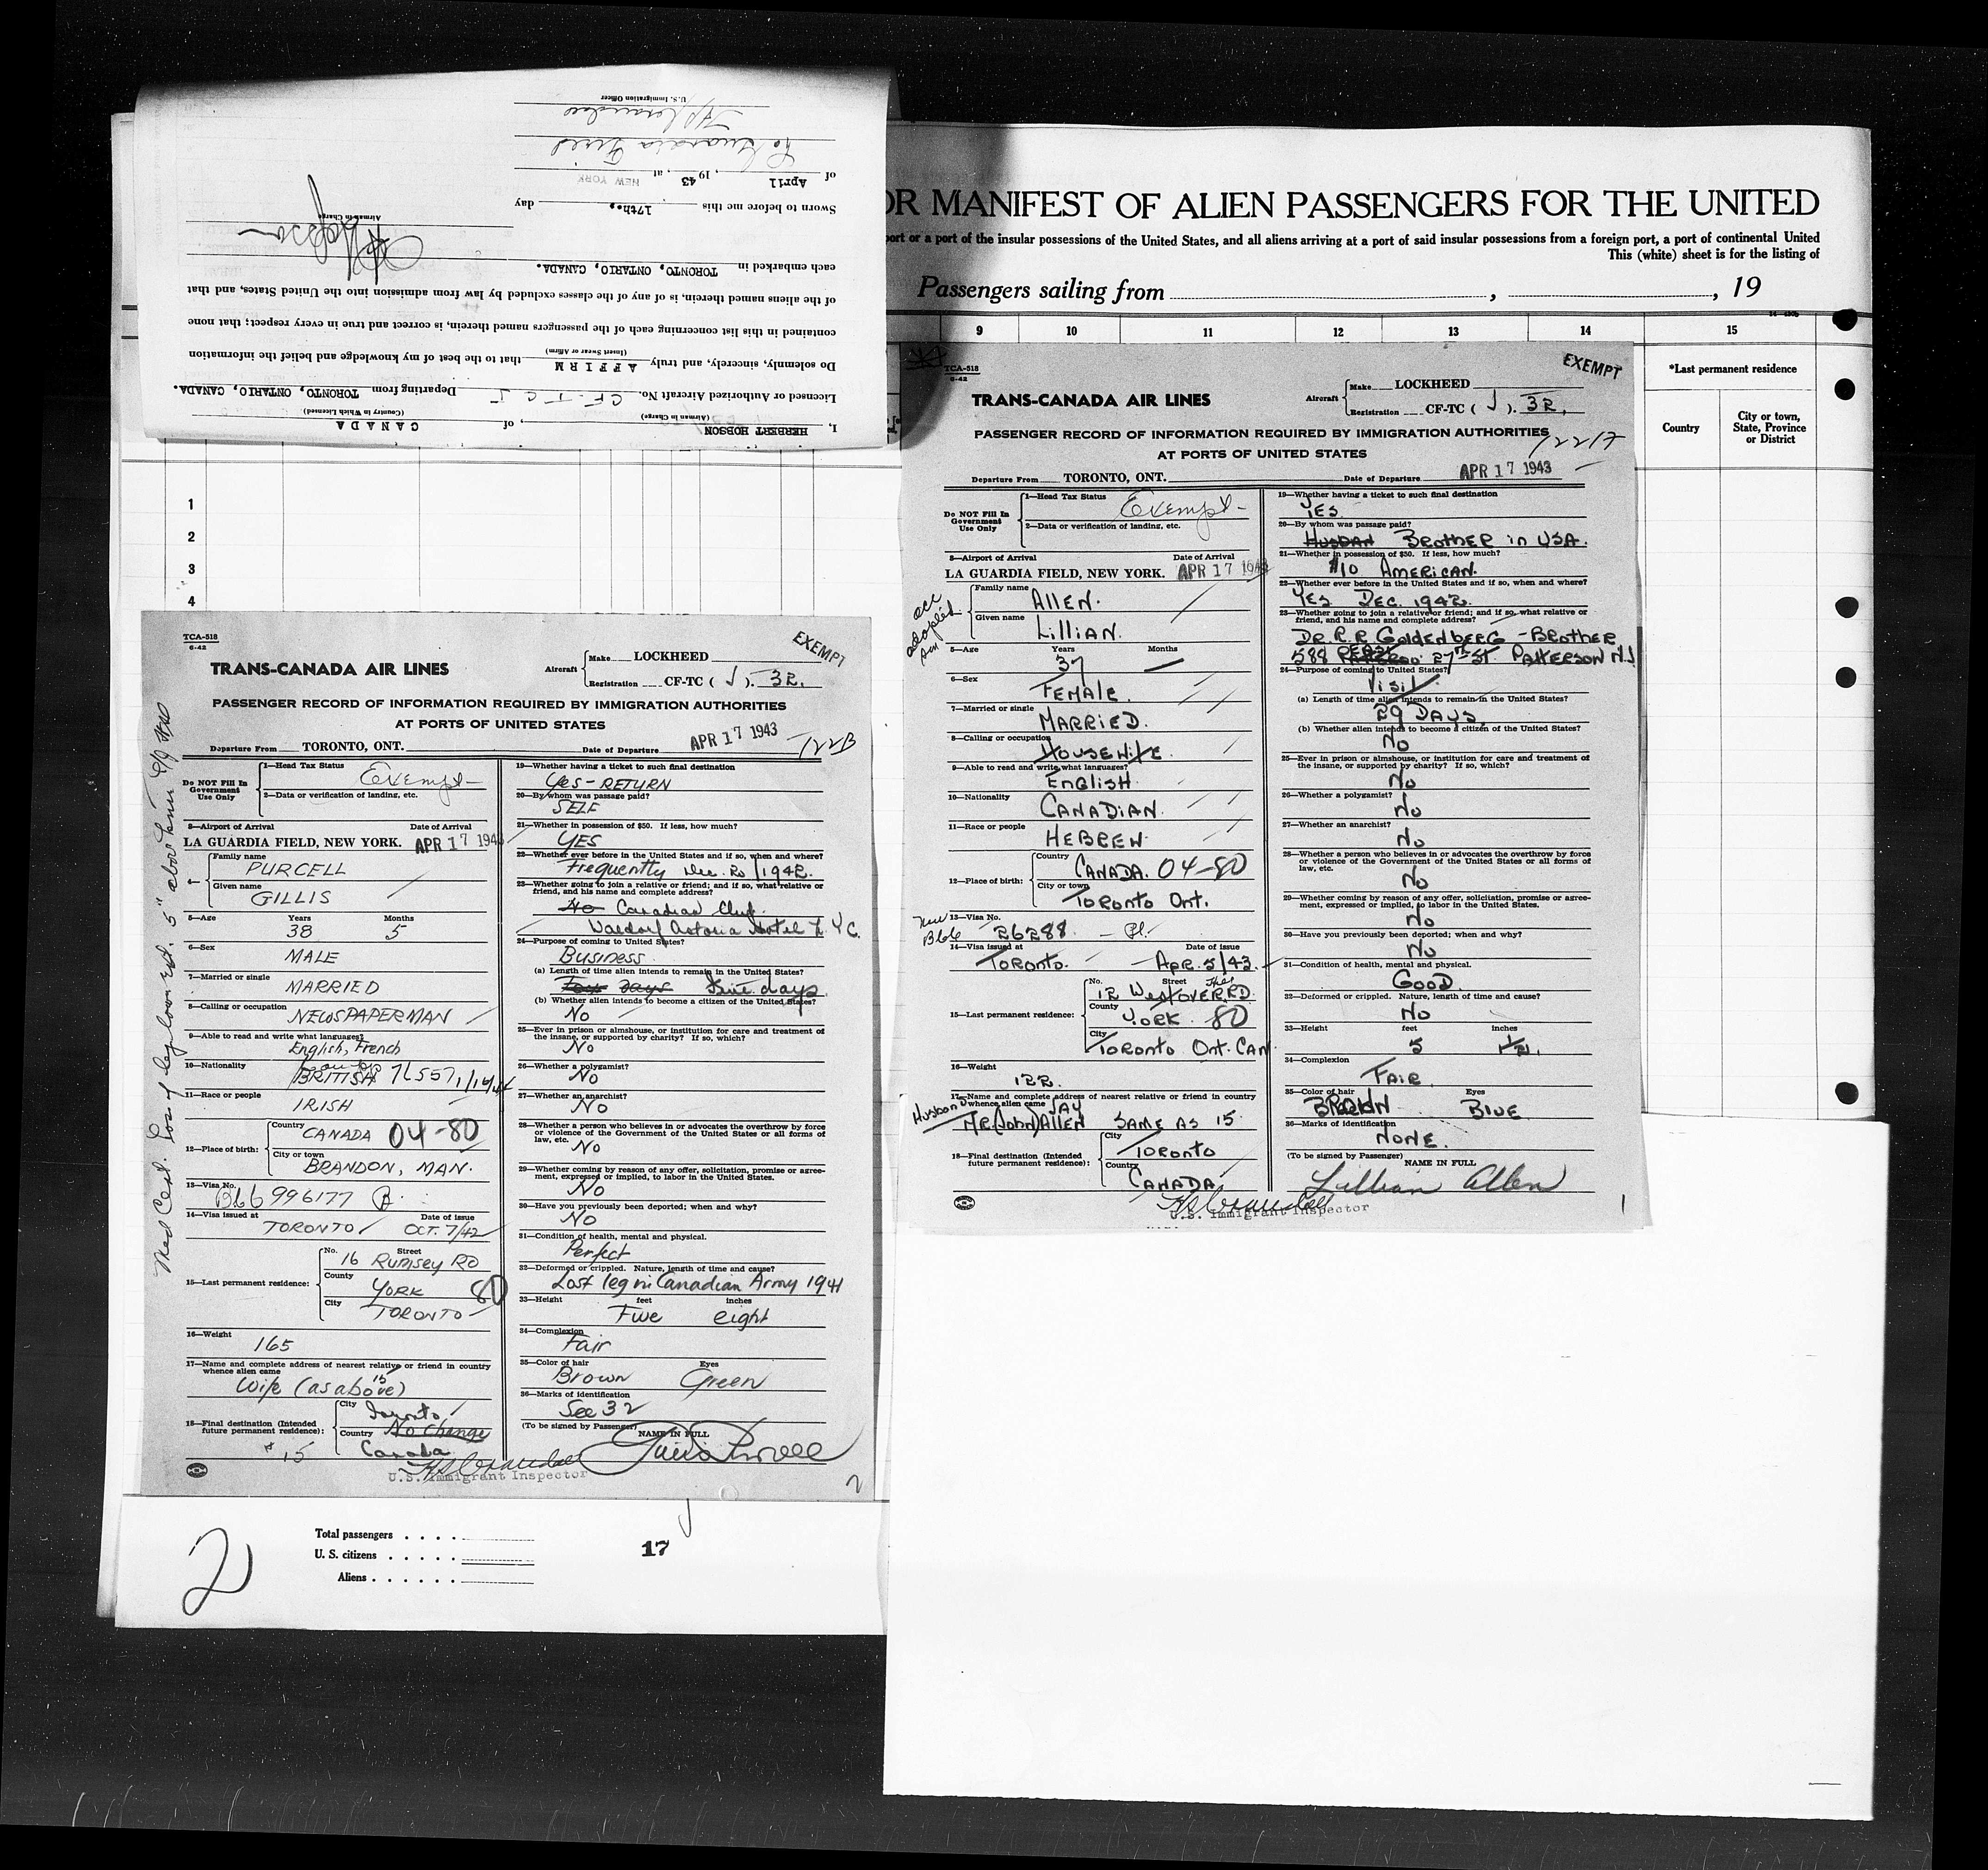 OR MANIFEST OF ALIEN PASSENGERS FOR THE UNITED
port or a port of the insular possessions of the United States, and all aliens arriving at a port of said insular possessions from a foreign port, a port of continental United
This (white) sheet is for the listing of
Passengers sailing from , , 19
9 10 11 12 13 14 15
*Last permanent residence
Country
City or town, State, Province or District
I, HERBERT HOBSON, of CANADA
(Airman in Charge) (Country in Which Licensed)
Licensed or Authorized Aircraft No. CF-TCJ Departing from TORONTO, ONTARIO, CANADA.
Do solemnly, sincerely, and truly AFFIRM that to the best of my knowledge and belief the information
(Insert Swear or Affirm)
contained in this list concerning each of the passengers named therein, is correct and true in every respect; that none
of the aliens named therein, is of any of the classes excluded by law from admission into the United States, and that
each embarked in TORONTO, ONTARIO, CANADA.
H Hobson
Airman in Charge
Sworn to before me this 17th. day
of April, 1943, at NEW YORK
La Guardia Field
U.S. Immigration Officer
1
2
3
4
TCA-518
6-42
EXEMPT
TRANS-CANADA AIR LINES
Aircraft Make LOCKHEED
Registration CF-TC ( J ). 32.
PASSENGER RECORD OF INFORMATION REQUIRED BY IMMIGRATION AUTHORITIES
AT PORTS OF UNITED STATES
Departure From TORONTO, ONT. Date of Departure APR 17 1943
Do NOT Fill In Government Use Only
1—Head Tax Status Exempt
2—Data or verification of landing, etc.
3—Airport of Arrival Date of Arrival
LA GUARDIA FIELD, NEW YORK. APR 17 1943
4— Family name PURCELL
Given name GILLIS
5—Age Years 38 Months 5
6—Sex MALE
7—Married or single MARRIED
8—Calling or occupation NEWSPAPERMAN
9—Able to read and write what languages? English, French
10—Nationality BRITISH
11—Race or people IRISH
12—Place of birth: Country CANADA 04-80
City or town BRANDON, MAN.
13—Visa No. B66 996177
14—Visa issued at TORONTO Date of issue OCT. 7/42
15—Last permanent residence: No. 16 Street RUMSEY RD
County YORK 80
City TORONTO
16—Weight 165
17—Name and complete address of nearest relative or friend in country whence alien came
Wife (as above) 15
18—Final destination (Intended future permanent residence): City Toronto
Country No change Canada
15
19—Whether having a ticket to such final destination
Yes - RETURN
20—By whom was passage paid?
SELF
21—Whether in possession of $50. If less, how much?
YES
22—Whether ever before in the United States and if so, when and where?
Frequently Dec. 20/1942.
23—Whether going to join a relative or friend; and if so, what relative or friend, and his name and complete address?
No Canadian Club
Waldorf Astoria Hotel N.Y.C.
24—Purpose of coming to United States?
Business
(a) Length of time alien intends to remain in the United States?
Four days Five days
(b) Whether alien intends to become a citizen of the United States?
No
25—Ever in prison or almshouse, or institution for care and treatment of the insane, or supported by charity? If so, which?
No
26—Whether a polygamist?
No
27—Whether an anarchist?
No
28—Whether a person who believes in or advocates the overthrow by force or violence of the Government of the United States or all forms of law, etc.
No
29—Whether coming by reason of any offer, solicitation, promise or agreement, expressed or implied, to labor in the United States.
No
30—Have you previously been deported; when and why?
No
31—Condition of health, mental and physical.
Perfect
32—Deformed or crippled. Nature, length of time and cause?
Lost leg in Canadian Army 1941
33—Height feet Five inches eight
34—Complexion
Fair
35—Color of hair Brown Eyes Green
36—Marks of identification
See 32
(To be signed by Passenger) NAME IN FULL
Gillis Purcell
U.S. Immigrant Inspector
2
TCA-518
6-42
EXEMPT
TRANS-CANADA AIR LINES
Aircraft Make LOCKHEED
Registration CF-TC ( J ). 32.
PASSENGER RECORD OF INFORMATION REQUIRED BY IMMIGRATION AUTHORITIES
AT PORTS OF UNITED STATES
Departure From TORONTO, ONT. Date of Departure APR 17 1943
Do NOT Fill In Government Use Only
1—Head Tax Status Exempt
2—Data or verification of landing, etc.
3—Airport of Arrival Date of Arrival
LA GUARDIA FIELD, NEW YORK. APR 17 1943
Family name ALLEN.
Given name LILLIAN.
5—Age Years 37 Months —
6—Sex FEMALE.
7—Married or single MARRIED.
8—Calling or occupation HOUSEWIFE.
9—Able to read and write what languages? ENGLISH.
10—Nationality CANADIAN.
11—Race or people HEBREW.
12—Place of birth: Country CANADA. 04-80
City or town TORONTO ONT.
13—Visa No. B66 26288
14—Visa issued at TORONTO. Date of issue Apr. 5/43.
15—Last permanent residence: No. 12 Street WESTOVER RD.
County YORK 80
City TORONTO ONT. CAN
16—Weight 122.
17—Name and complete address of nearest relative or friend in country whence alien came
Husband MR (John) JAY ALLEN SAME AS 15.
18—Final destination (Intended future permanent residence): City TORONTO
Country CANADA
19—Whether having a ticket to such final destination
YES.
20—By whom was passage paid?
HUSBAN BROTHER in USA.
21—Whether in possession of $50. If less, how much?
$10 AMERICAN.
22—Whether ever before in the United States and if so, when and where?
YES DEC. 1942.
23—Whether going to join a relative or friend; and if so, what relative or friend, and his name and complete address?
DR. R.R GOLDENBERG - BROTHER
588 EAST 27TH ST. PATTERSON N.J
24—Purpose of coming to United States?
Visit
(a) Length of time alien intends to remain in the United States?
29 DAYS.
(b) Whether alien intends to become a citizen of the United States?
No
25—Ever in prison or almshouse, or institution for care and treatment of the insane, or supported by charity? If so, which?
No
26—Whether a polygamist?
No
27—Whether an anarchist?
No
28—Whether a person who believes in or advocates the overthrow by force or violence of the Government of the United States or all forms of law, etc.
No
29—Whether coming by reason of any offer, solicitation, promise or agreement, expressed or implied, to labor in the United States.
No
30—Have you previously been deported; when and why?
No
31—Condition of health, mental and physical.
GOOD.
32—Deformed or crippled. Nature, length of time and cause?
No
33—Height feet 5 inches 1 1/2.
34—Complexion
FAIR
35—Color of hair BROWN Eyes BLUE
36—Marks of identification
NONE.
(To be signed by Passenger) NAME IN FULL
Lillian Allen
U.S. Immigrant Inspector
1
2
Total passengers
U. S. citizens
Aliens
17